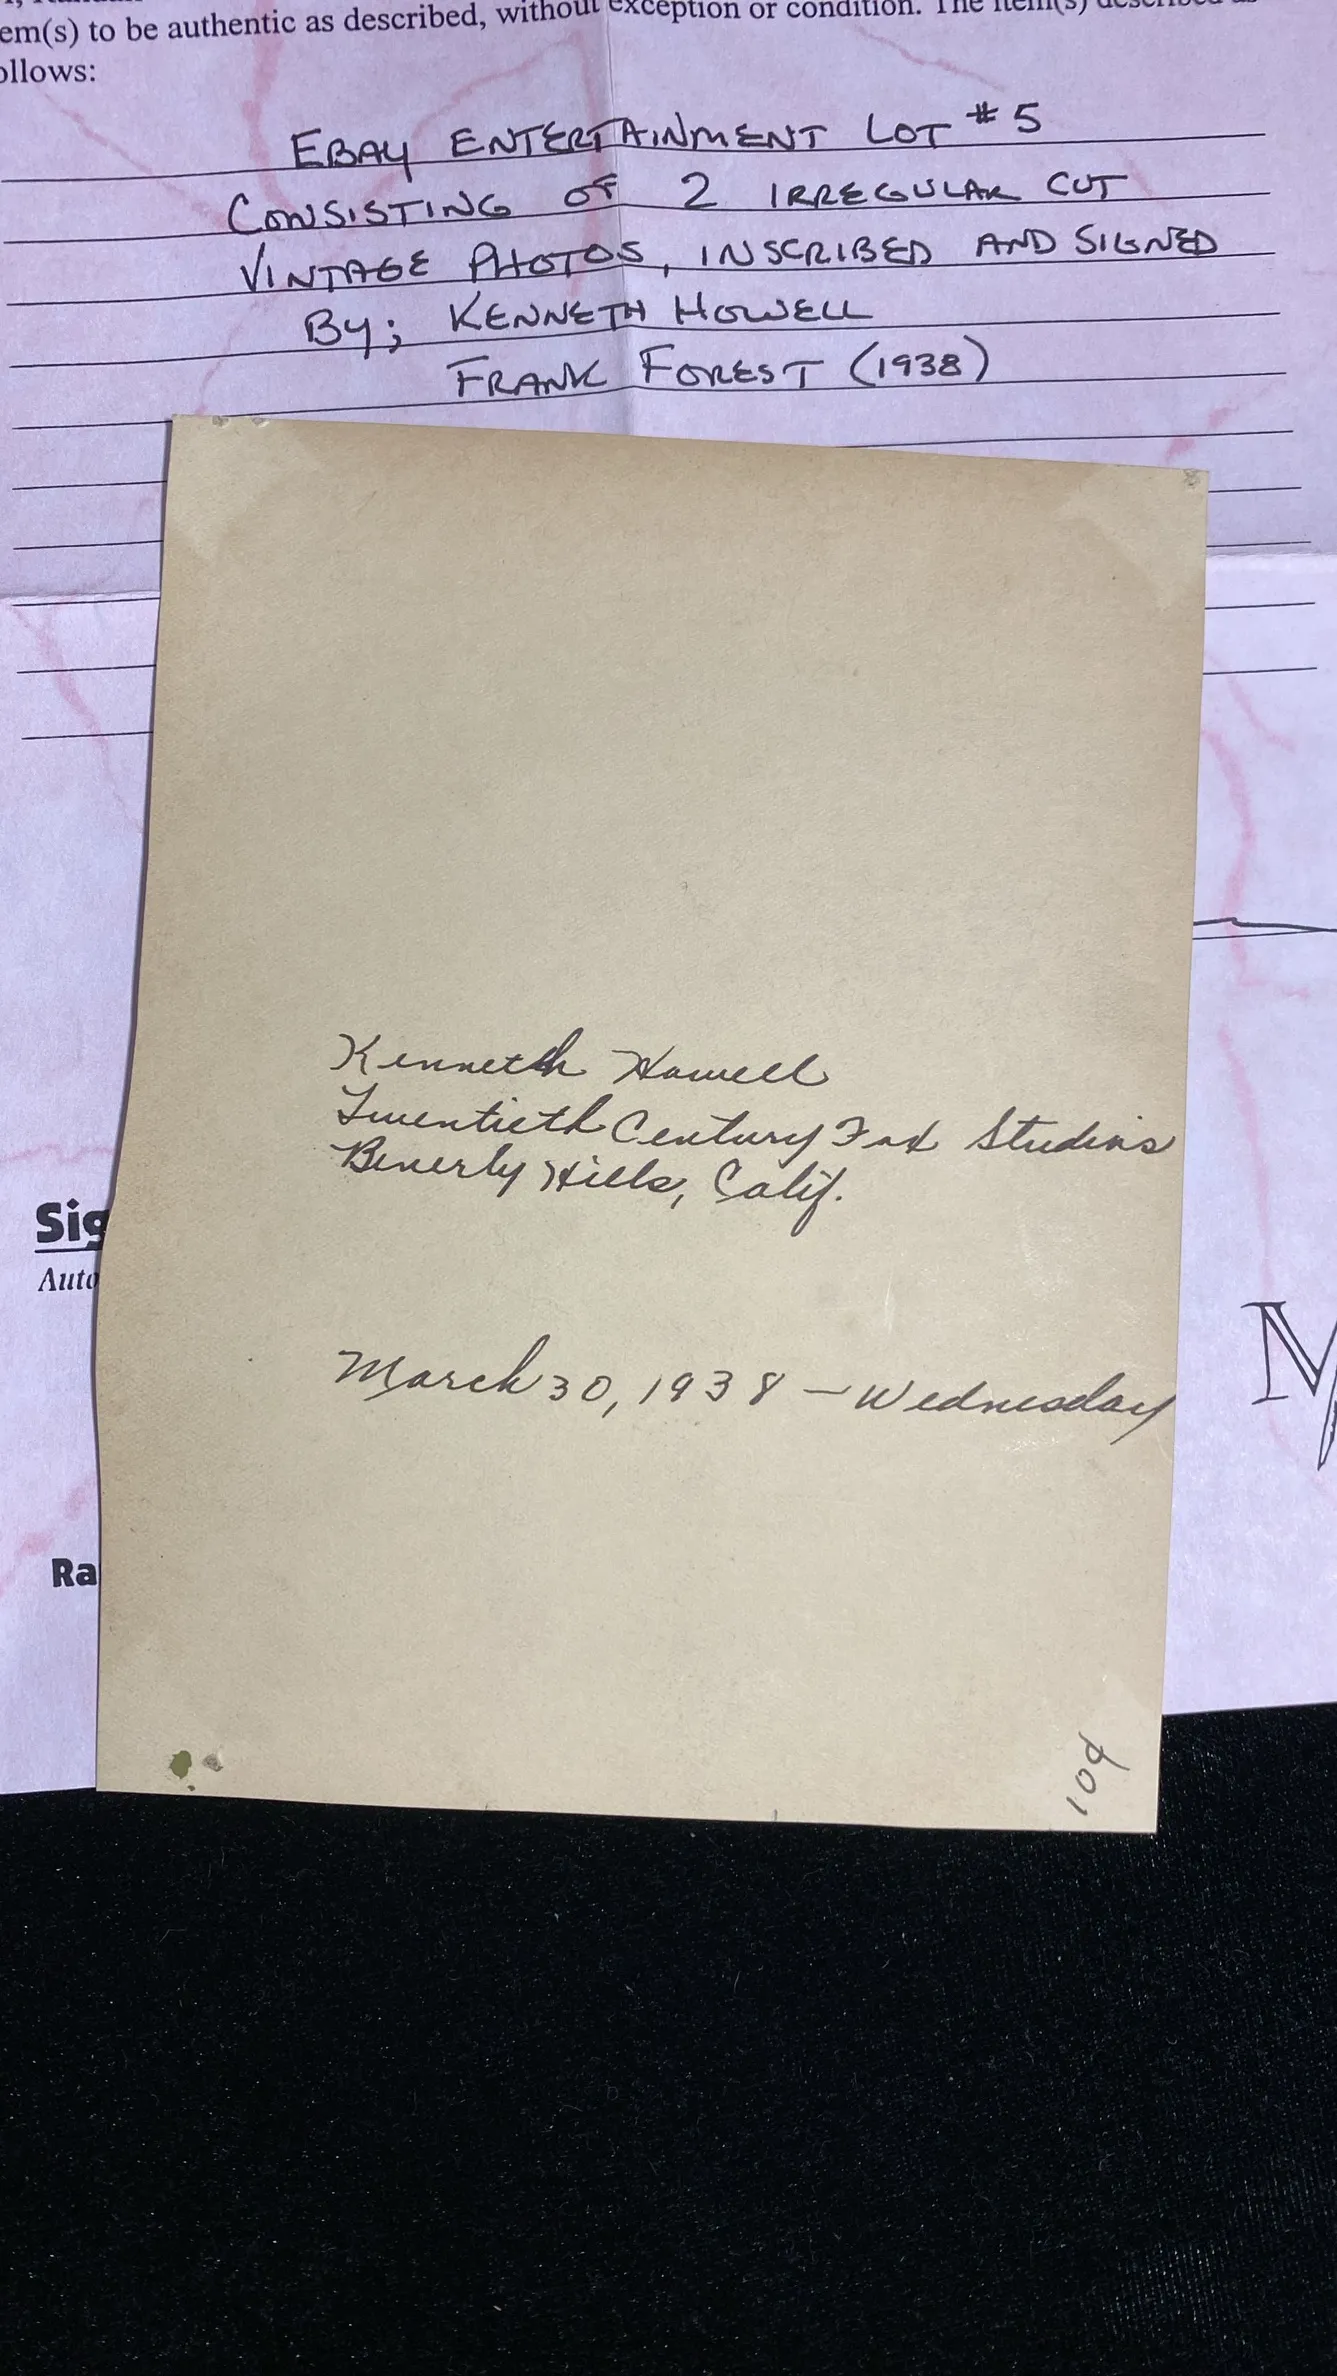 em(s) to be authentic as described, without exception or condition. The item(s) described as
ollows:
EBAY ENTERTAINMENT LOT #5
CONSISTING OF 2 IRREGULAR CUT
VINTAGE PHOTOS, INSCRIBED AND SIGNED
BY; KENNETH HOWELL
FRANK FOREST (1938)
Kenneth Howell
Twentieth Century Fox Studios
Beverly Hills, Calif.
Sig
Auto
March 30, 1938 – Wednesday
M
Ra
10¢